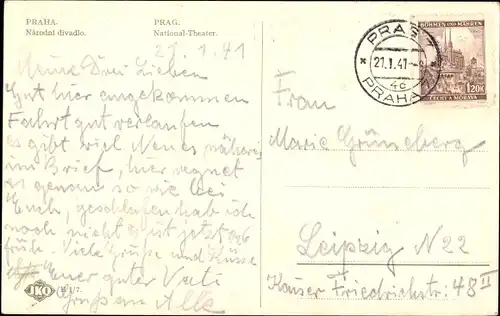 PRAHA.
Národní divadlo.
PRAG.
National-Theater.
21.1.41
Meine Drei Lieben
Gut hier angekommen
Fahrt gut verlaufen
es gibt viel Neues näheres
im Brief, hier regnet
es genau so wie bei
Euch, geschlafen hab ich
noch nicht ist jetzt
früh. Viele Grüße und Küsse
Euer guter Vati
Gruß an Alle
JKO
PRAG
21.1.41
4c
PRAHA
BÖHMEN UND MÄHREN
ČECHY A MORAVA
1.20K
Frau
Marie Grüneberg
Leipzig N 22
Kaiser Friedrichstr: 48 II